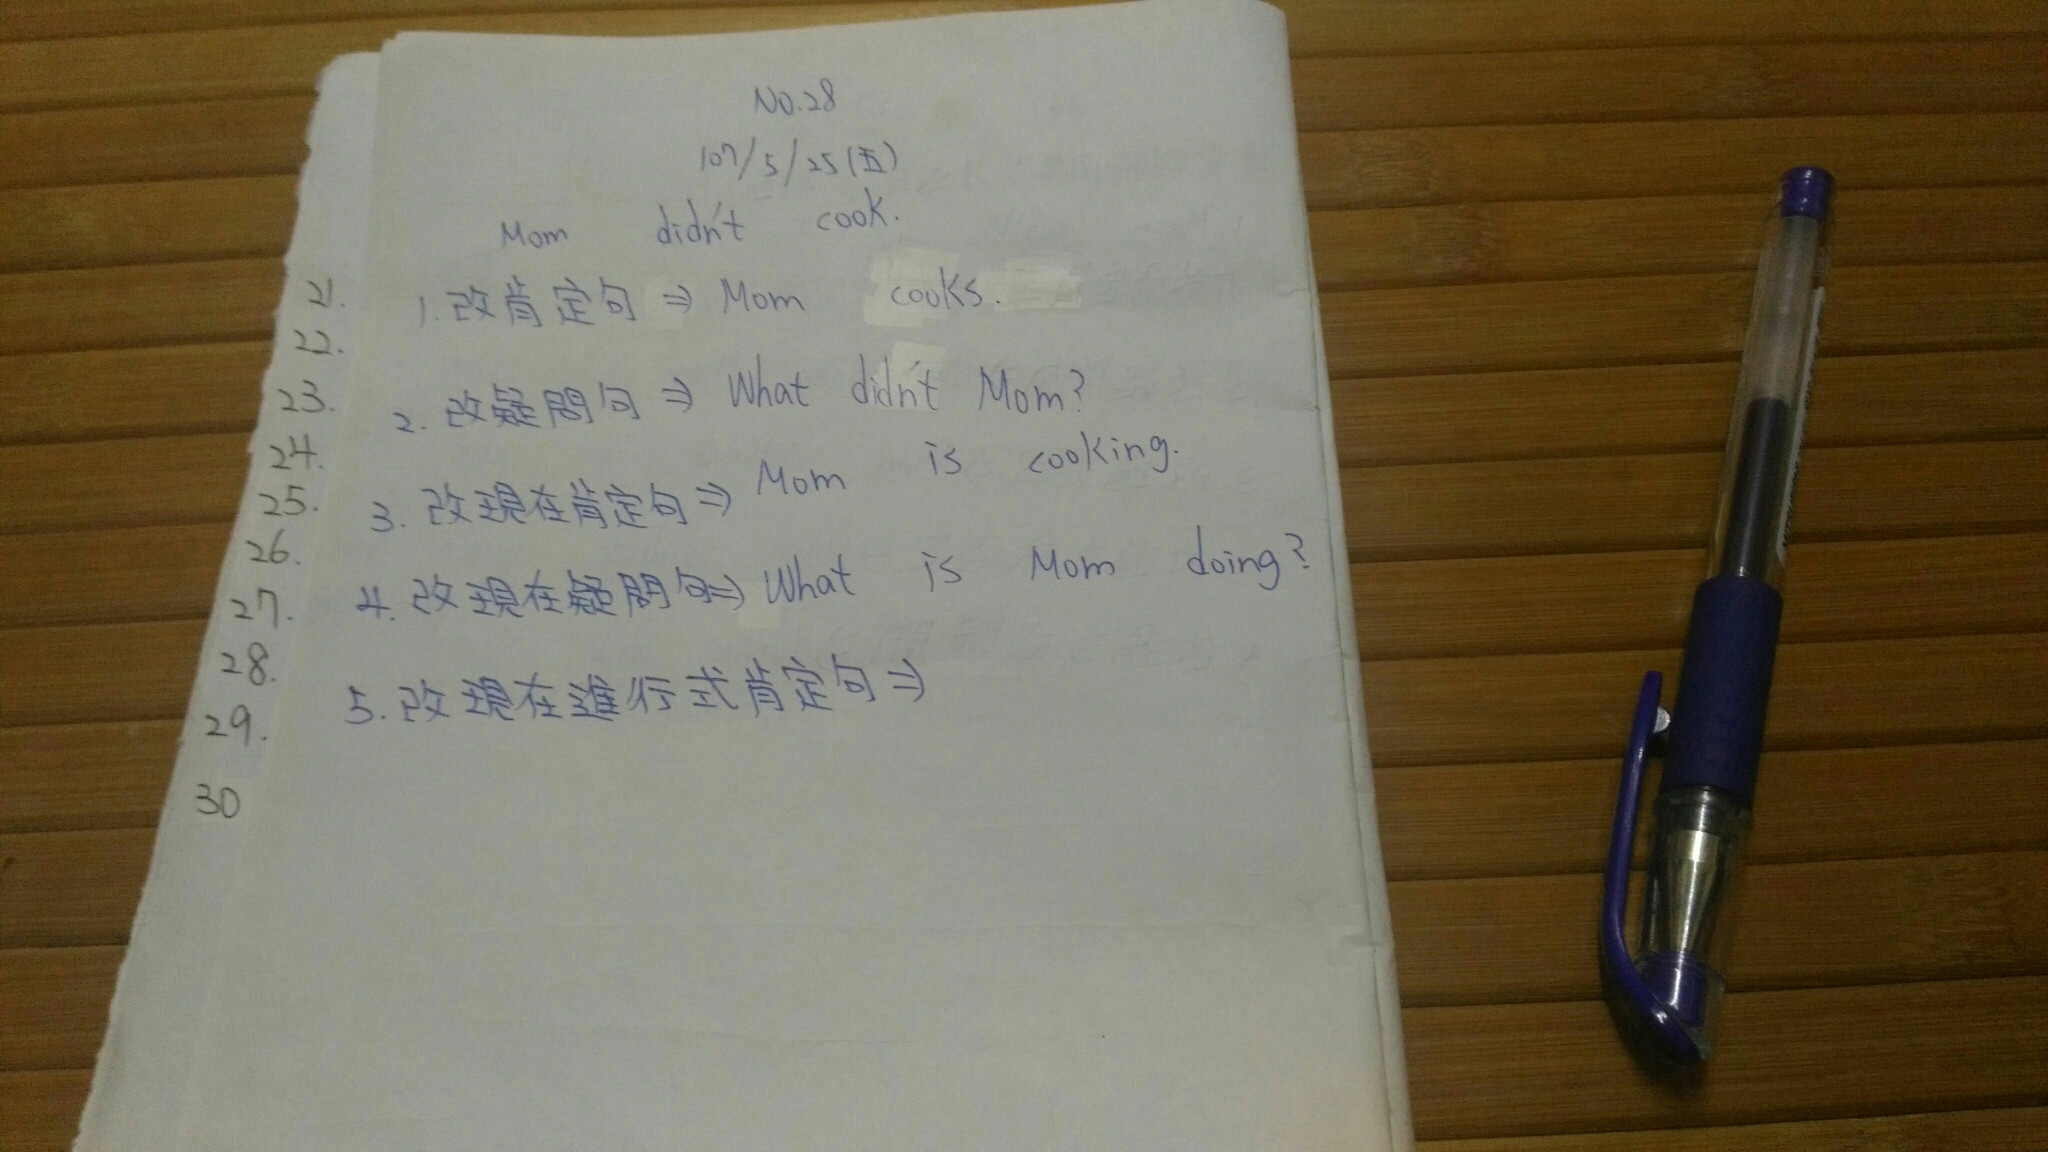 No.28
107/5/25(五)
Mom didn't cook.
1. 改肯定句 ⇒ Mom cooks.
2. 改疑問句 ⇒ What didn't Mom?
3. 改現在肯定句 ⇒ Mom is cooking.
4. 改現在疑問句 ⇒ What is Mom doing?
5. 改現在進行式肯定句 ⇒
21.
22.
23.
24.
25.
26.
27.
28.
29.
30